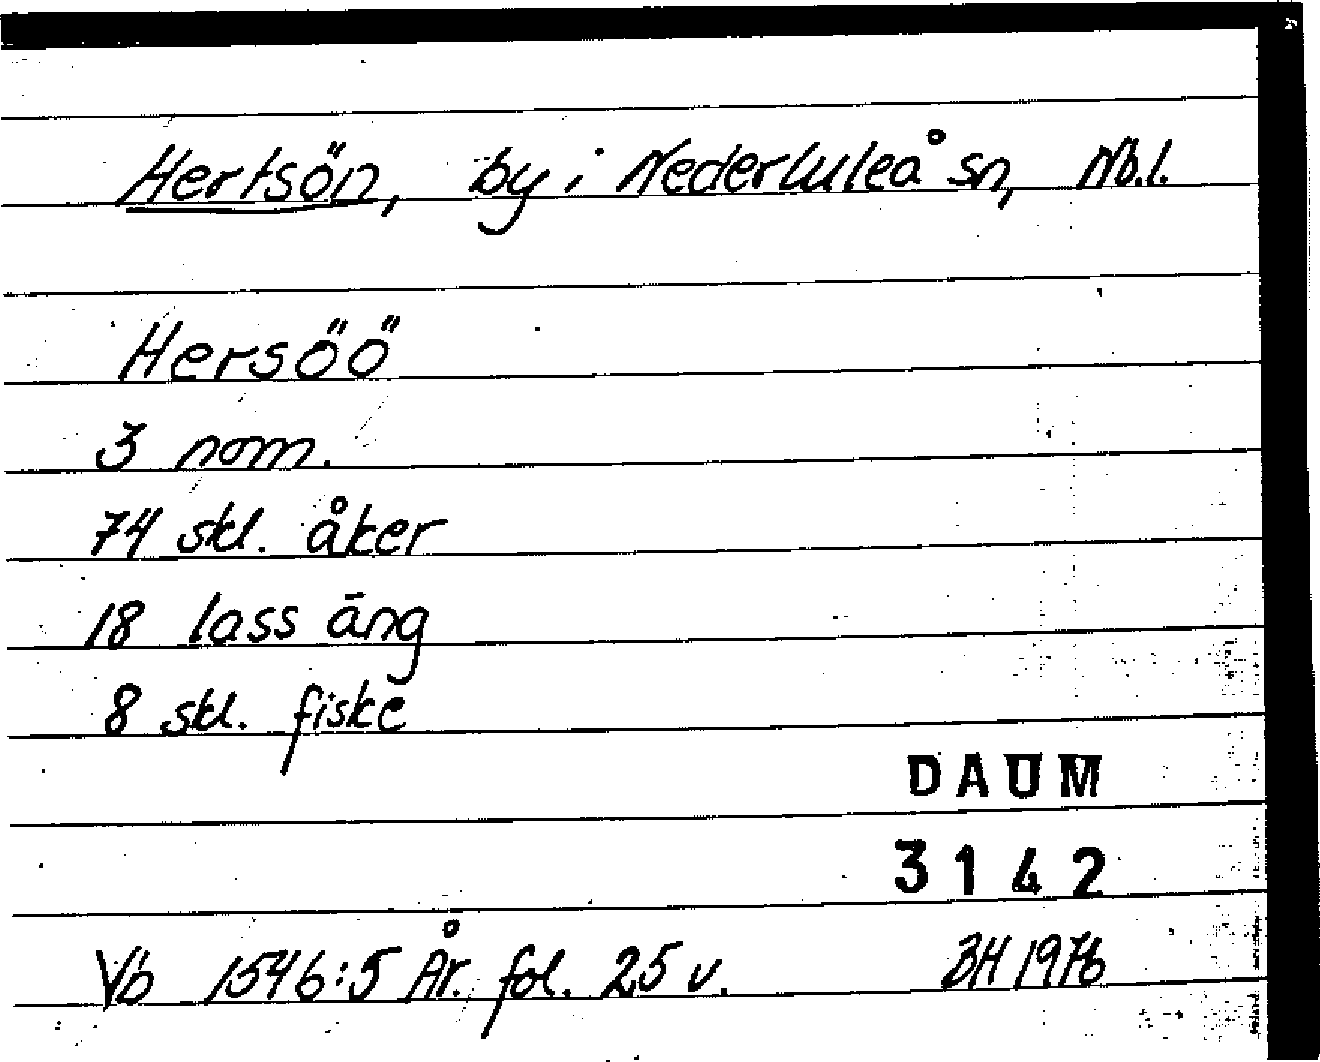 Hertsön, by i Nederluleå sn, Nb.l.
Hersöö
3 nom.
74 skl. åker
18 lass äng
8 skl. fiske
DAUM
3142
Vb 1546:5 År. fol. 25 v. BH 1976